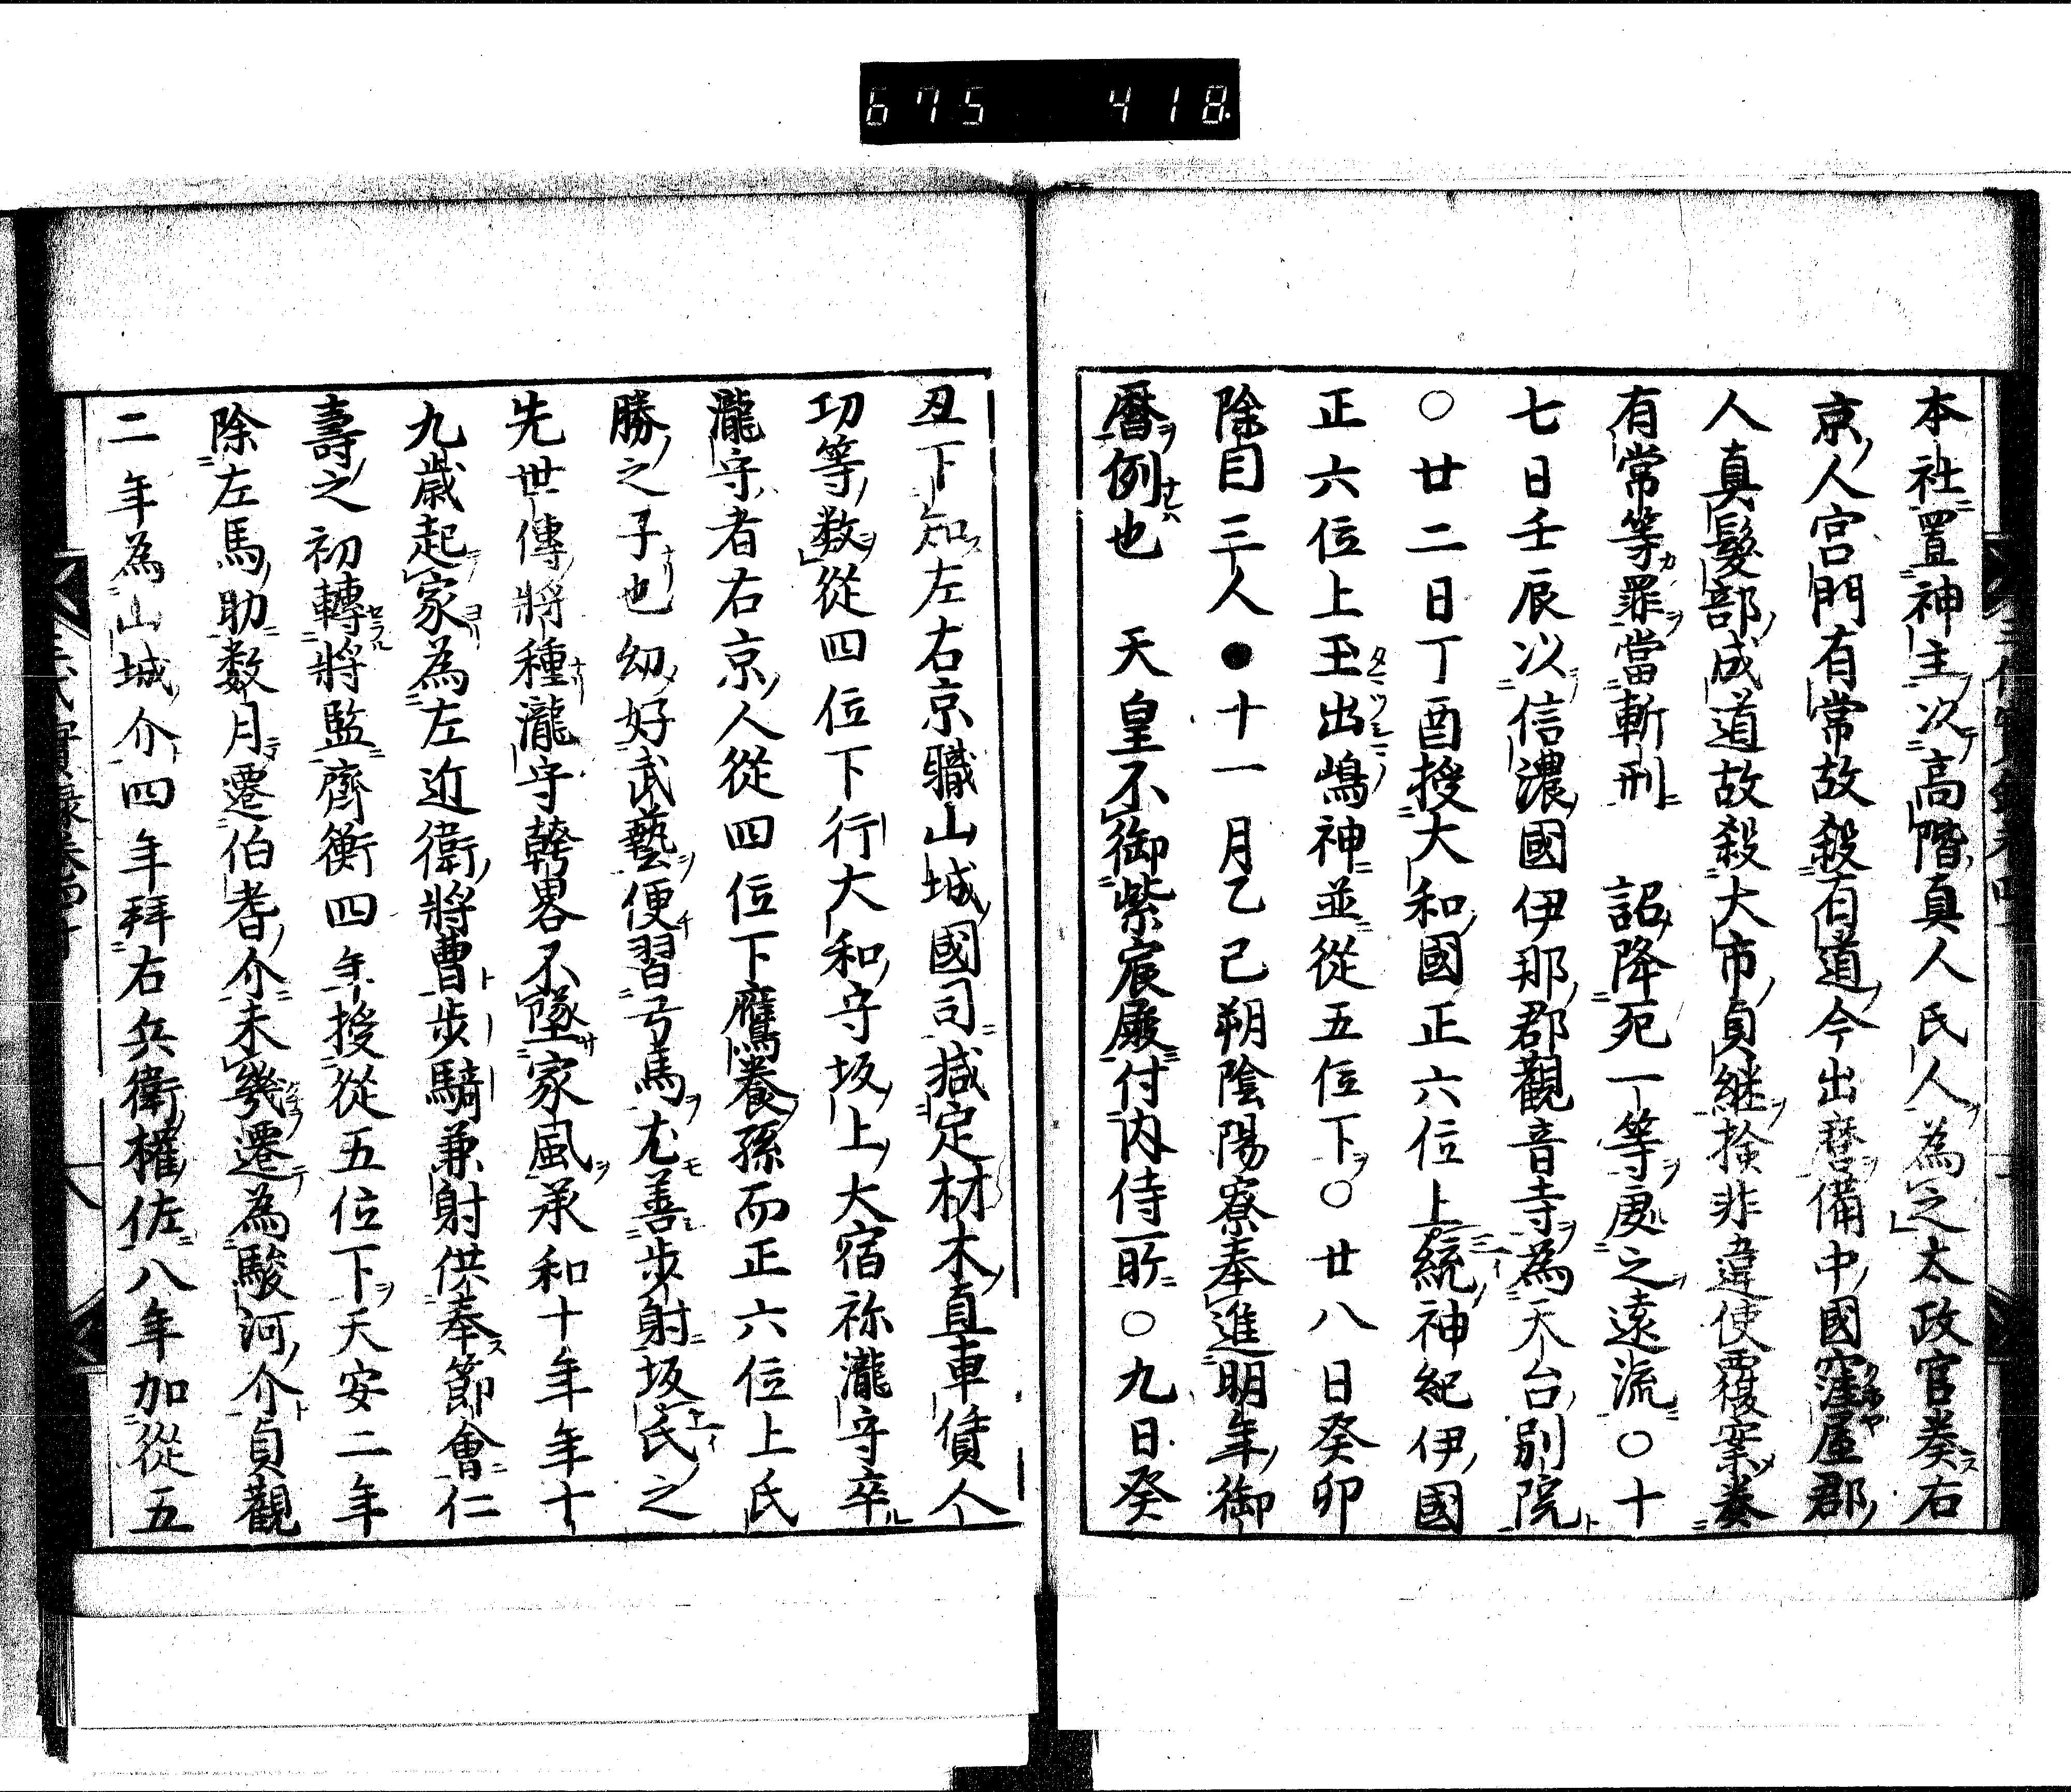 675 418
本社置神主以高階真人氏人為之太政官奏右
京人宮門有常故殺石道今出麿備中國窪屋郡
人真髮部成道故殺大市貞継検非違使覆案奏
有常等罪當斬刑 詔降死一等處之遠流○十
七日壬辰以信濃國伊那郡觀音寺為天台別院
○廿二日丁酉授大和國正六位上統神紀伊國
正六位上玉出嶋神並從五位下○廿八日癸卯
除目三人●十一月乙己朔陰陽寮奉進明年御
曆例也 天皇不御紫宸殿付内侍所○九日癸
丑下知左右京職山城國司減定材木直車賃人
功等數從四位下行大和守坂上大宿祢瀧守卒
瀧守者右京人從四位下鷹養孫而正六位上氏
勝之子也幼好武藝便習弓馬尤善步射坂氏之
先世傳將種瀧守幹畧不墜家風承和十年年十
九歲起家為左近衛將曹步騎兼射供奉節會仁
壽之初轉將監齊衡四年授從五位下天安二年
除左馬助数月遷伯耆介未幾遷為駿河介貞觀
二年為山城介四年拜右兵衛權佐八年加從五